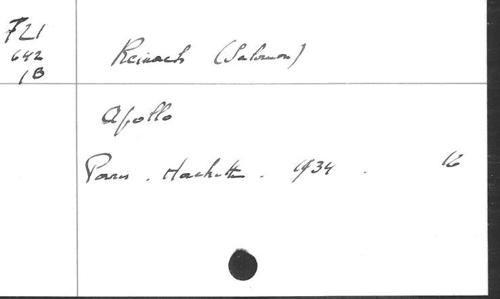 721
642
1B
Reinach (Salomon)
Apollo
Paris. Hachette. 1934. 16